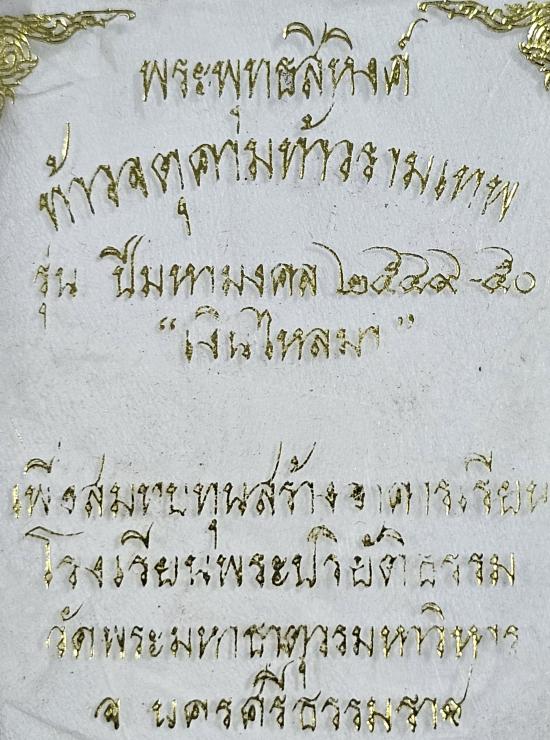 พระพุทธสิหิงค์
ท้าวจตุคามท้าวรามเทพ
รุ่น ปีมหามงคล ๒๕๔๙-๕๐
“เงินไหลมา”
เพื่อสมทบทุนสร้างอาคารเรียน
โรงเรียนพระปริยัติธรรม
วัดพระมหาธาตุวรมหาวิหาร
จ นครศรีธรรมราช